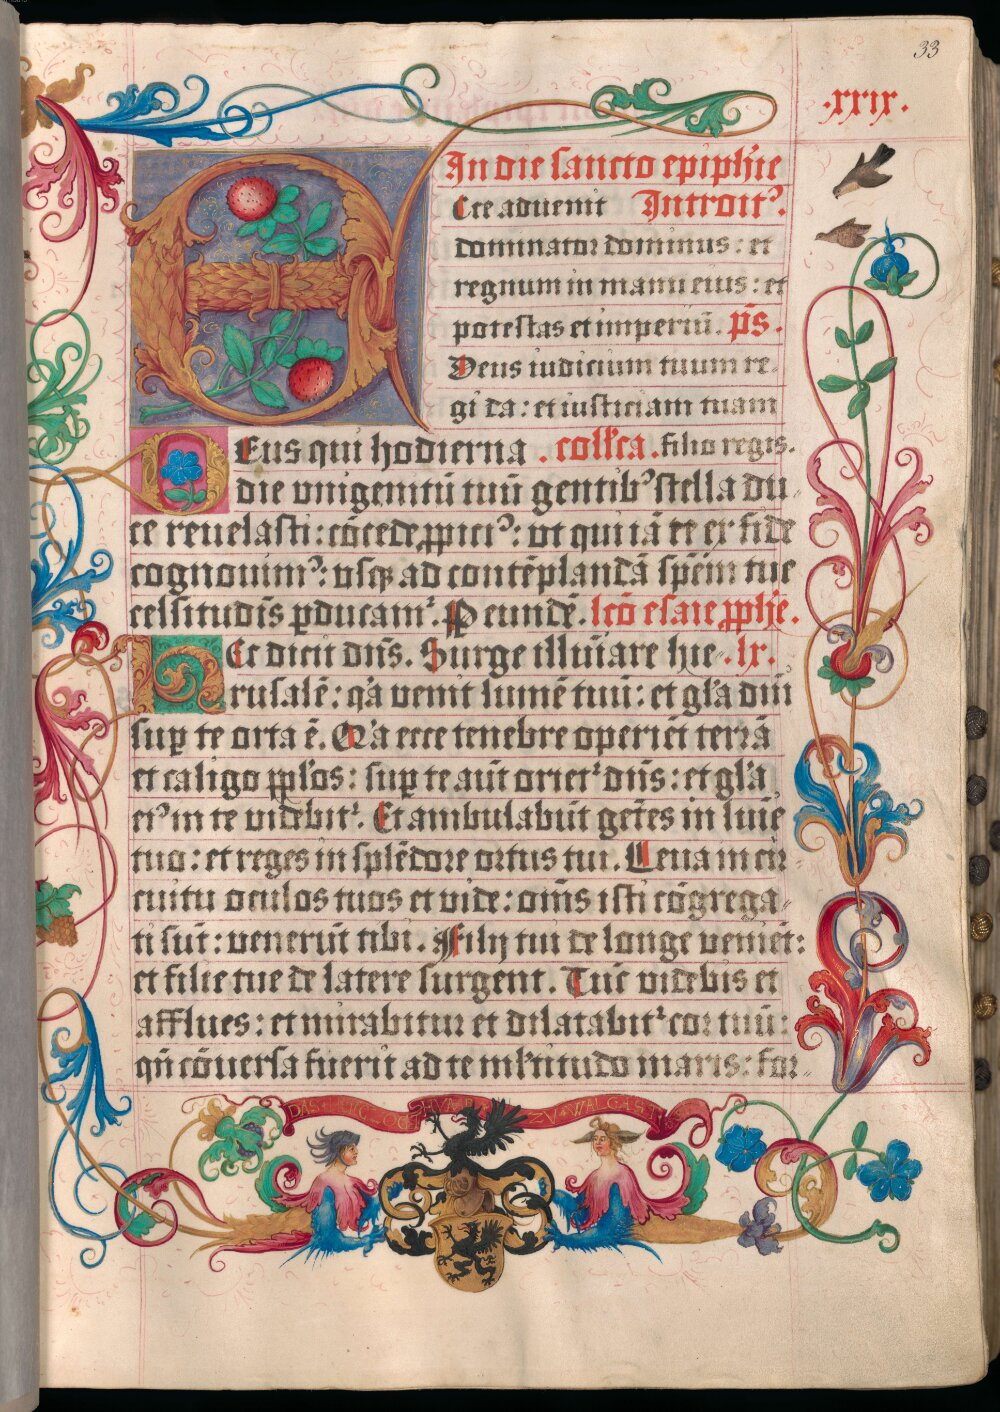 33
.xxix.
In die sancto epiph̄ie
Ecce advenit Introitꝰ.
dominator dominus: et
regnum in manu eius: et
potestas et imperiū. p̄s.
Deus iudicium tuum re-
gi da: et iusticiam tuam
Deus qui hodierna .coll'ca. filio regis.
die vnigenitū tuū gentibꝰ stella du-
ce reuelasti: cōcede ꝓpiciꝰ: vt qui iā te ex fide
cognouimꝰ: vsqꝫ ad contēplandā spēm tue
celsitudīs ꝑducamˀ. Per eundē. lc̄o esaie ꝓph̄e.
Hec dicit dn̄s. Surge illuīare hie- .lx.
rusalē: qˀa uenit lumē tuū: et gl'a dn̄i
suꝑ te orta ē. Qˀa ecce tenebre operiēt terrā
et caligo ppl'os: suꝑ te aūt orietˀ dn̄s: et gl'a
eiꝰ in te uidebitˀ. Et ambulabūt gētes in luīe
tuo: et reges in splēdore ortus tui. Leua in cir-
cuitu oculos tuos et uide: om̄s isti cōgrega-
ti sūt: venerūt tibi. Filij tui de longe venient:
et filie tue de latere surgent. Tūc uidebis et
afflues: et mirabitur et dilatabitˀ cor tuū:
qn̄ cōuersa fuerit ad te ml'titudo maris: for-